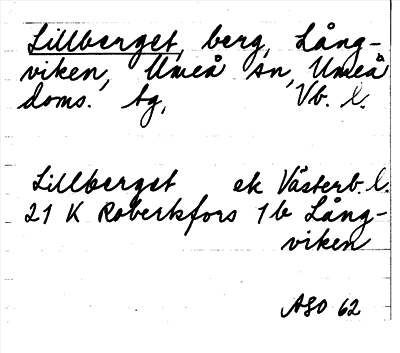 Lillberget, berg, Lång-
viken, Umeå sn, Umeå
doms. tg, Vb. l.
Lillberget ek Västerb. l.
21 K Robertsfors 1b Lång-
viken
ASO 62